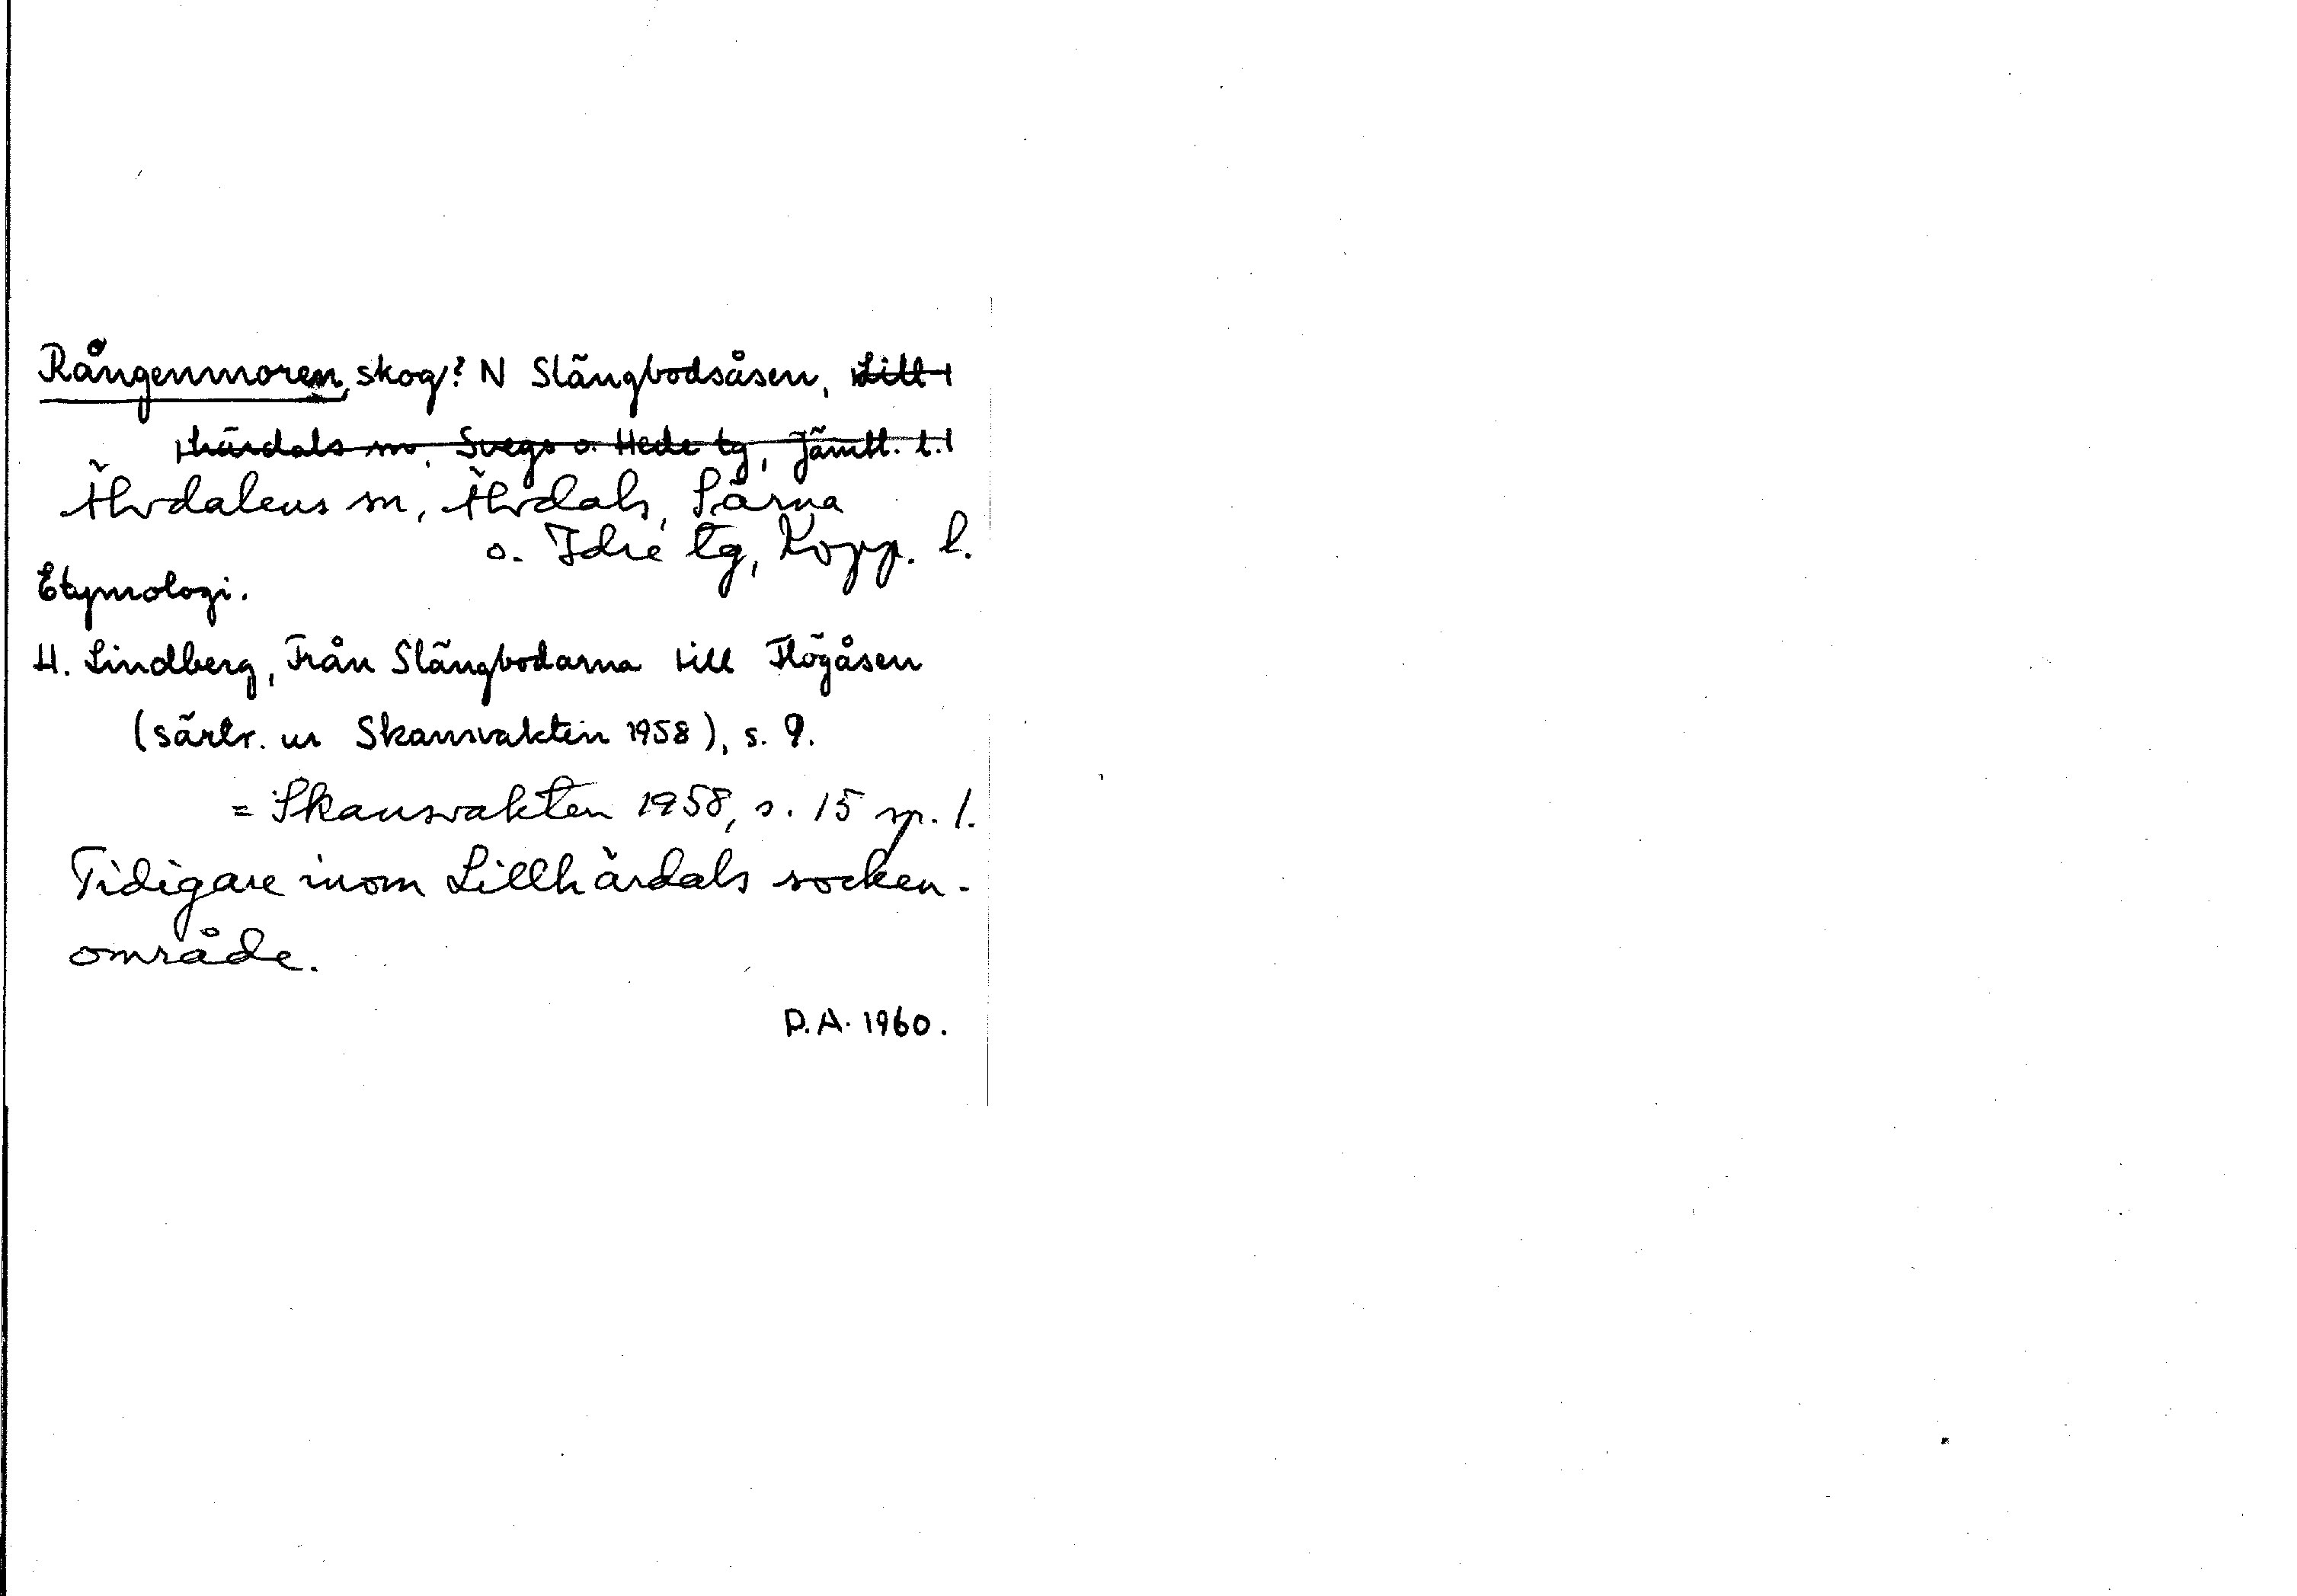 Rångenmoren, skog? N Slängbodsåsen, Lill-
härdals sn, Svegs o. Hede tg, Jämtl. l.
Älvdalens sn, Älvdals, Särna
o. Idre tg, Kopp. l.
Etymologi.
H. Lindberg, Från Slängbodarna till Flögåsen
(särtr. ur Skansvakten 1958), s. 9.
= Skansvakten 1958, s. 15 sp. 1.
Tidigare inom Lillhärdals socken-
område.
D.A. 1960.